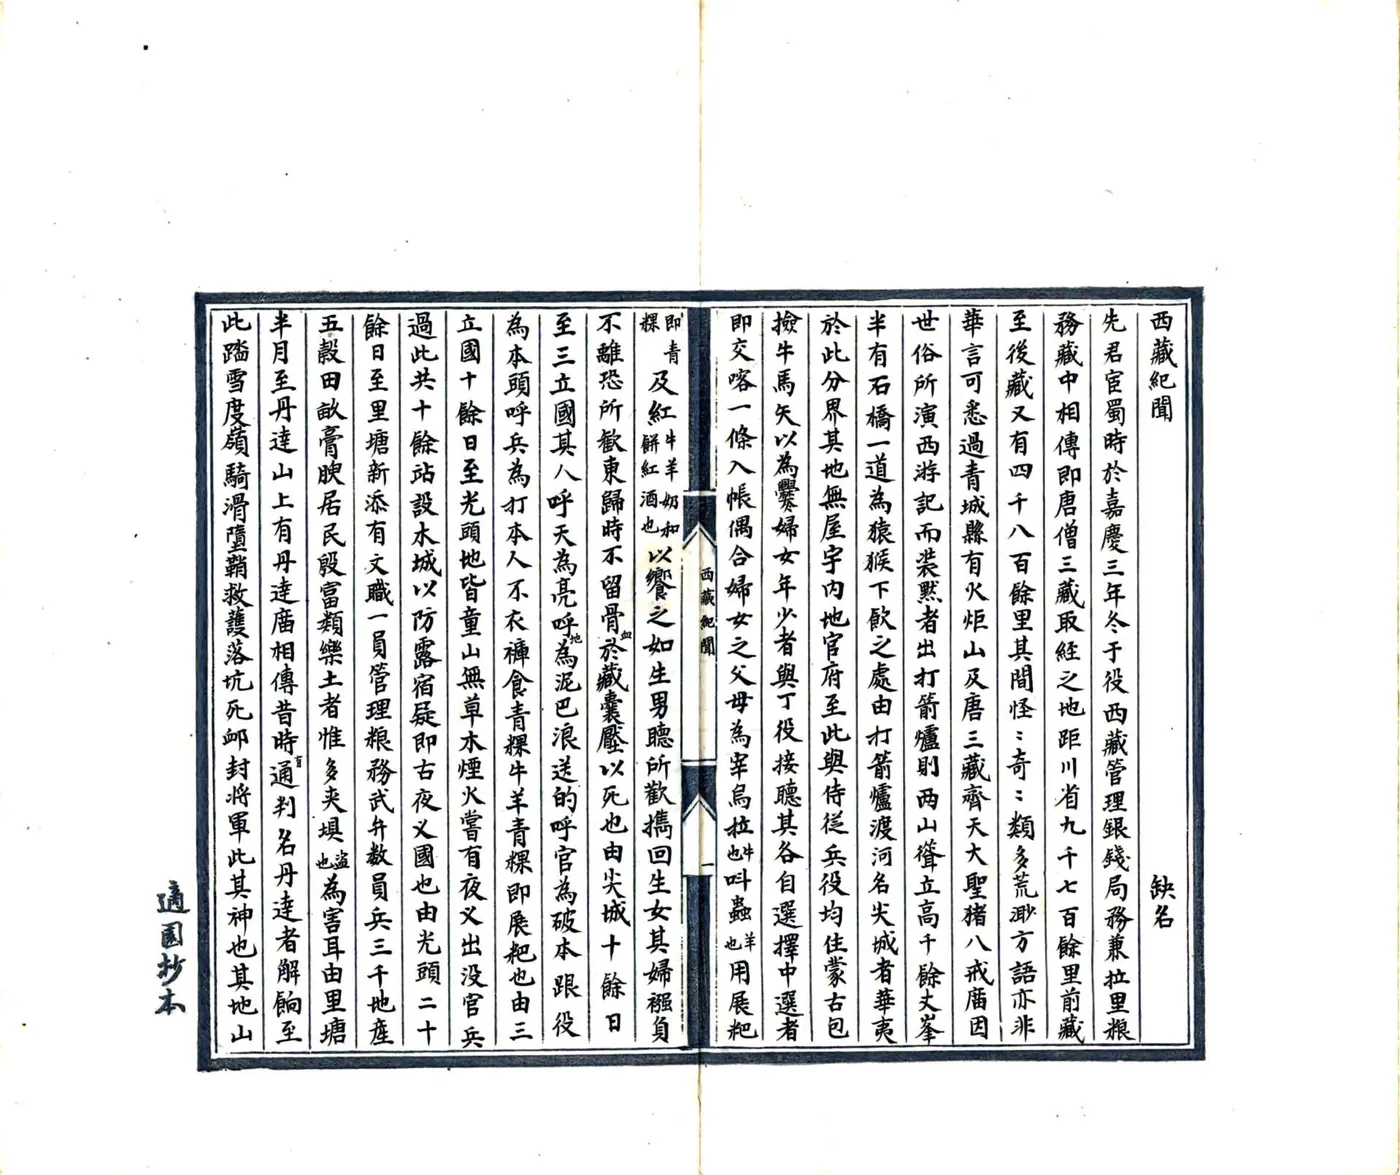 西藏紀聞　缺名
先君宦蜀時於嘉慶三年冬于役西藏管理銀錢局務兼拉里粮
務藏中相傳即唐僧三藏取經之地距川省九千七百餘里前藏
至後藏又有四千八百餘里其間怪：奇：類多荒渺方語亦非
華言可悉過青城縣有火炬山及唐三藏齊天大聖猪八戒廟因
世俗所演西游記而裝㸃者出打箭爐則两山聳立高千餘丈峯
半有石橋一道為猿猴下飲之處由打箭爐渡河名尖城者華夷
於此分界其地無屋宇内地官府至此與侍從兵役均住蒙古包
撿牛馬矢以為爨婦女年少者與丁役接聽其各自選擇中選者
即交喀一條入帳偶合婦女之父母為宰烏拉牛也呌蟲羊也用展粑
即青粿及紅牛羊奶和餅紅酒也以饗之如生男聽所歡攜回生女其婦襁負
不離恐所歡東歸時不留骨血於藏囊壓以死也由尖城十餘日
至三立國其人呼天為亮呼地為泥巴浪送的呼官為破本跟役
為本頭呼兵為打本人不衣褲食青粿牛羊青粿即展粑也由三
立國十餘日至光頭地皆童山無草木煙火嘗有夜义出没官兵
過此共十餘站設木城以防露宿疑即古夜义國也由光頭二十
餘日至里塘新添有文職一員管理粮務武弁数員兵三千地産
五穀田畝膏腴居民殷富類樂土者惟多夹埧盜也為害耳由里塘
半月至丹達山上有丹達廟相傳昔時有通判名丹達者解餉至
此踏雪度嶺騎滑墮鞘救護落坑死卹封将軍此其神也其地山
西藏紀聞
一
適園抄本